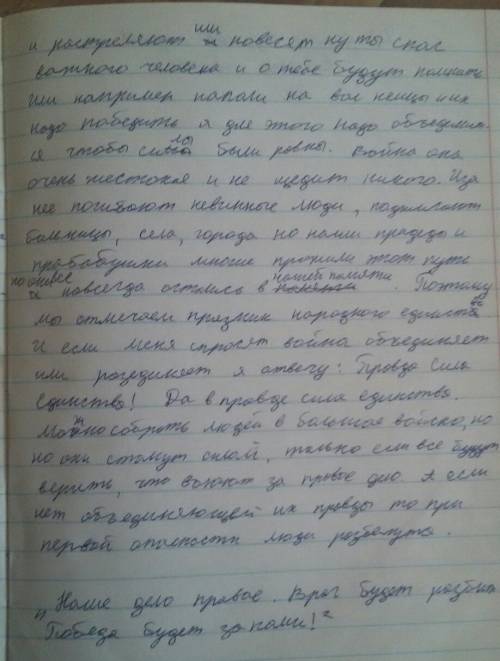 и растреляют или повесят ну ты спас
важного человека и о тебе будут помнить
Или например напали на вас немцы и их
надо победить я для этого надо объедини-
ся чтобы силы были ровны. Война она
очень жестокая и не щедит никого. Из за
нее погибают невинные люди, поджигают
больницы, села, города но наши прадеды и
прабабушки многие прожили этот путь
навсегда остались в нашей памяти. Поэтому
мы отмечаем празник народного единства
И если меня спросят война объединяет
или разединяет я отвечу: Правда Сила
Единства! Да в правде сила единства.
Можно собрать людей в большое войско, но
но они станут силой, только если все будут
верить, что воюют за правое дело. А если
нет объединяющей их правды то при
первой опасности люди разбегутся.
„Наше дело правое. Враг будет разбит
Победа будет за нами!"